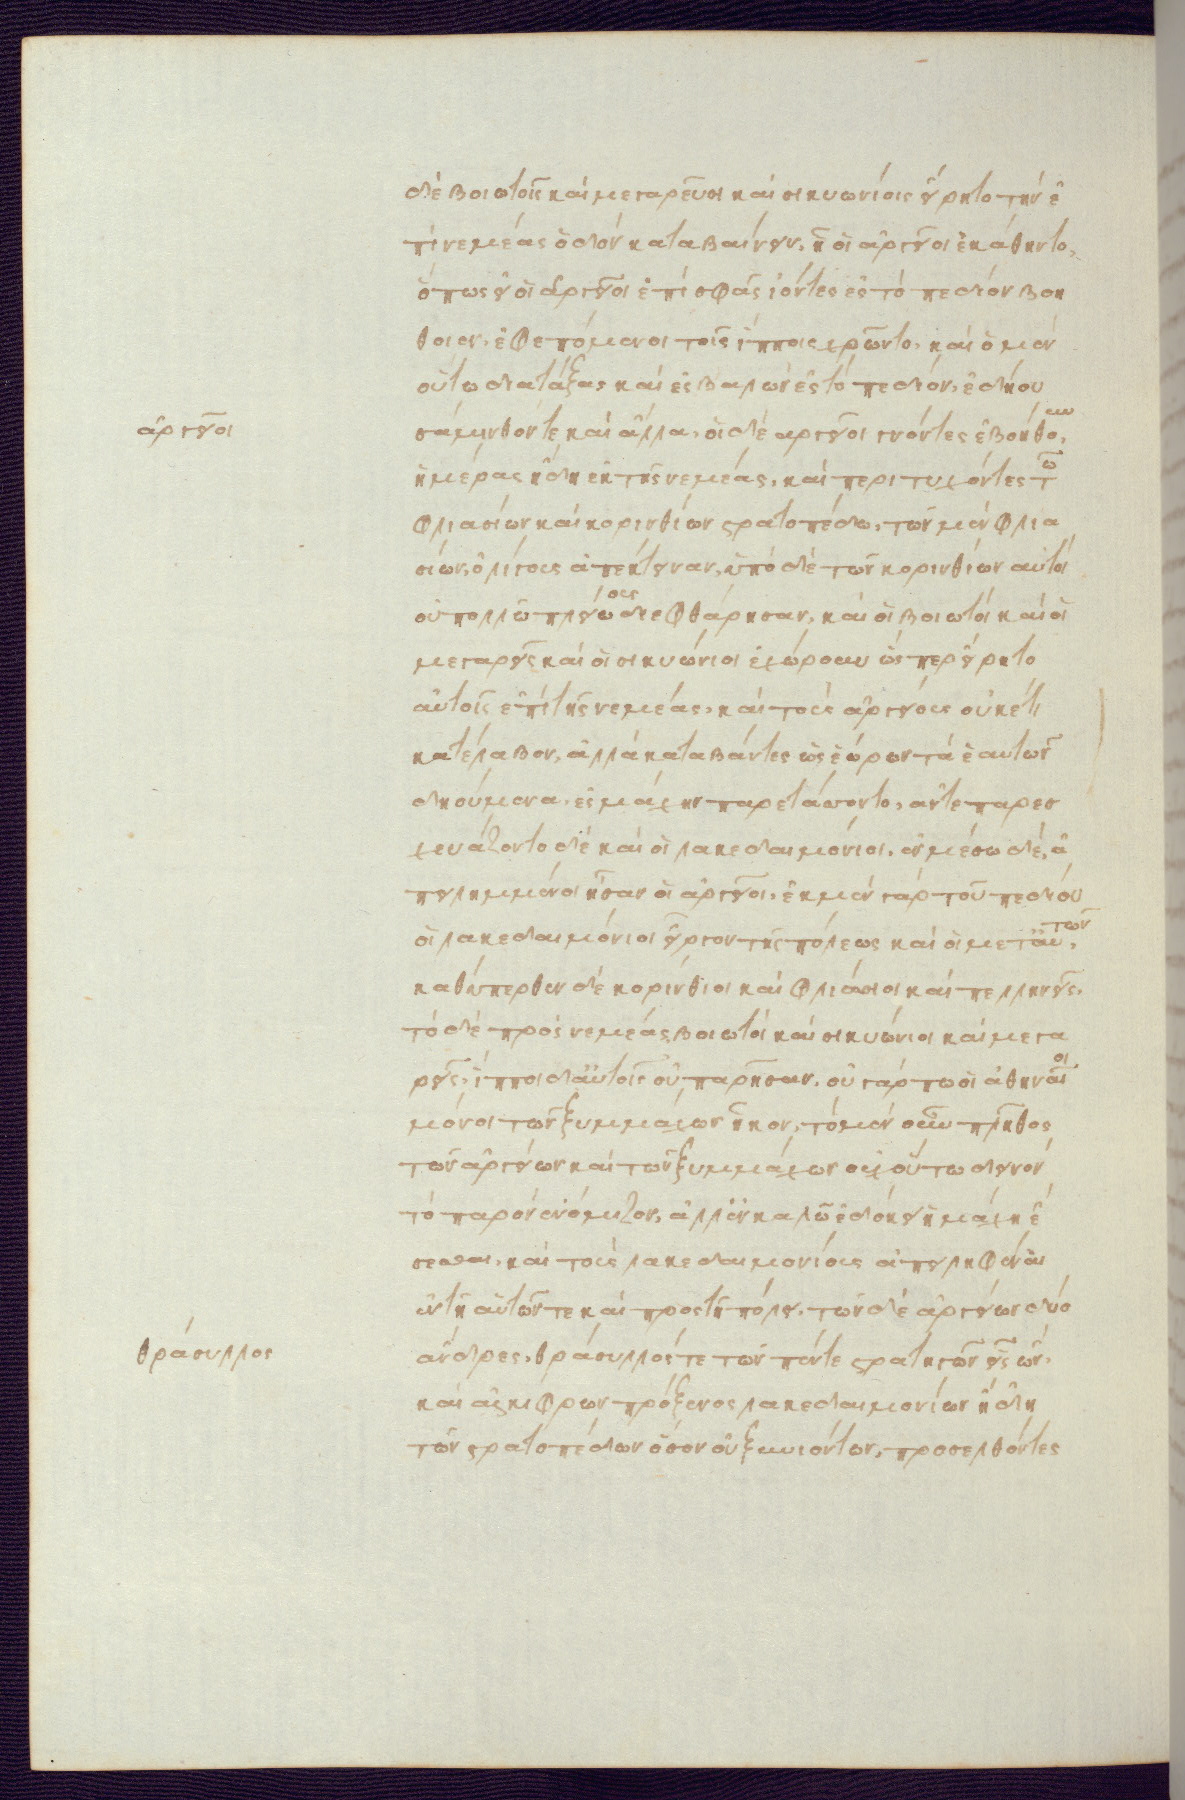 δὲ βοιωτοῖς καὶ μεγαρεῦσι καὶ σικυωνίοις εἴρητο τὴν ἐ
πὶ νεμέας ὁδὸν καταβαίνειν, ἧ οἱ ἀργεῖοι ἐκάθηντο,
ὅπως εἰ οἱ ἀργεῖοι ἐπὶ σφᾶς ἰόντες ἐς τὸ πεδίον βοη
θοῖεν, ἐφεπόμενοι τοῖς ἵπποις χρῶντο, καὶ ὁ μὲν
οὕτω διατάξας καὶ ἐσβαλὼν ἐς τὸ πεδίον, ἐδήου
ἀργεῖοι
σάμινθόν τε καὶ ἄλλα, οἱ δὲ ἀργεῖοι γνόντες ἐβοήθουν,
ἡμέρας ἤδη ἐκ τῆς νεμέας, καὶ περιτυχόντες τῶ
φλιασίων καὶ κορινθίων στρατοπέδω, τῶν μὲν φλια
σίων, ὀλίγους ἀπέκτειναν, ὑπὸ δὲ τῶν κορινθίων αὐτοὶ
οὐ πολλῶ πλείους διεφθάρησαν, καὶ οἱ βοιωτοὶ καὶ οἱ
μεγαρεῖς καὶ οἱ σικυώνιοι ἐχώρουν ὥσπερ εἴρητο
αὐτοῖς ἐπὶ τῆς νεμέας, καὶ τοὺς ἀργείους οὐκέτι
κατέλαβον, ἀλλὰ καταβάντες ὡς ἑώρων τὰ ἑαυτῶν
δηούμενα, ἐς μάχην παρετάσσοντο, ἀντιπαρεσ
κευάζοντο δὲ καὶ οἱ λακεδαιμόνιοι, ἐν μέσω δὲ, ἀ
πειλημμένοι ἦσαν οἱ ἀργεῖοι, ἐκ μὲν γὰρ τοῦ πεδίου
οἱ λακεδαιμόνιοι εἶργον τῆς πόλεως καὶ οἱ μετ' αὐτῶν,
καθύπερθεν δὲ κορίνθιοι καὶ φλιάσιοι καὶ πελληνεῖς,
τὸ δὲ πρὸς νεμέας βοιωτοὶ καὶ σικυώνιοι καὶ μεγα
ρεῖς, ἵπποι δ' αὐτοῖς οὐ παρῆσαν, οὐ γάρ πω οἱ ἀθηναῖοι
μόνοι τῶν ξυμμάχων ἧκον, τὸ μὲν οὖν πλῆθος
τῶν ἀργείων καὶ τῶν ξυμμάχων οὐχ οὕτω δεινὸν
τὸ παρὸν ἐνόμιζον, ἀλλ' ἐν καλῶ ἐδόκει ἡ μάχη ἔ
σεσθαι, καὶ τοὺς λακεδαιμονίους ἀπειληφέναι
ἐν τῆ αὐτῶν τε καὶ πρὸς τῆ πόλει, τῶν δὲ ἀργείων δύο
θράσυλλος
ἄνδρες, θράσυλλός τε τῶν πέντε στρατηγῶν εἷς ὢν,
καὶ ἀλκίφρων πρόξενος λακεδαιμονίων ἤδη
τῶν στρατοπέδων ὅσον οὐ ξυνιόντων, προσελθόντες